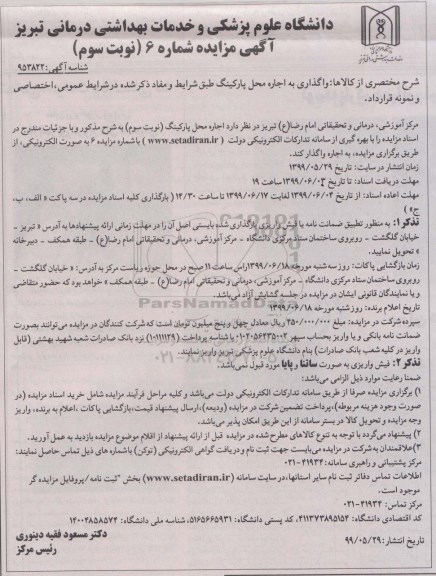 دانشگاه علوم پزشکی و خدمات بهداشتی درمانی تبریز
آگهی مزایده شماره ۶ (نوبت سوم)
شناسه آگهی: ۹۵۳۸۲۲
شرح مختصری از کالاها: واگذاری به اجاره محل پارکینگ طبق شرایط و مفاد ذکر شده در شرایط عمومی، اختصاصی
و نمونه قرارداد.
مرکز آموزشی، درمانی و تحقیقاتی امام رضا(ع) تبریز در نظر دارد اجاره محل پارکینگ (نوبت سوم) به شرح مذکور و با جزئیات مندرج در
اسناد مزایده را با بهره گیری از سامانه تدارکات الکترونیکی دولت (www.setadiran.ir) با شماره مزایده ۶ به صورت الکترونیکی، از
طریق برگزاری مزایده، به اجاره واگذار کند.
زمان انتشار در سایت: تاریخ ۱۳۹۹/۰۵/۲۹
مهلت دریافت اسناد: تا تاریخ ۱۳۹۹/۰۶/۰۳ ساعت ۱۹
مهلت اعاده اسناد: از تاریخ ۱۳۹۹/۰۶/۰۴ لغایت ۱۳۹۹/۰۶/۱۷ تا ساعت ۱۴/۳۰ ( بارگذاری کلیه اسناد مزایده در سه پاکت « الف، ب،
ج»)
تذکر۱: به منظور تطبیق ضمانت نامه یا فیش واریزی بارگذاری شده بایستی اصل آن را در مهلت زمانی ارائه پیشنهادها به آدرس « تبریز -
خیابان گلگشت - روبروی ساختمان ستاد مرکزی دانشگاه - مرکز آموزشی، درمانی و تحقیقاتی امام رضا(ع) - طبقه همکف - دبیرخانه
» تحویل نمایید.
زمان بازگشایی پاکات: روز سه شنبه مورخه ۱۳۹۹/۰۶/۱۸ راس ساعت ۱۱ صبح در محل حوزه ریاست مرکز به آدرس: « خیابان گلگشت -
روبروی ساختمان ستاد مرکزی دانشگاه - مرکز آموزشی، درمانی و تحقیقاتی امام رضا(ع) - طبقه همکف » خواهد بود که حضور متقاضی
و یا نمایندگان قانونی ایشان در مزایده در جلسه گشایش آزاد می‌باشد.
تاریخ اعلام برنده: روز شنبه مورخه ۱۳۹۹/۰۶/۱۸
سپرده شرکت در مزایده: مبلغ ۲۵۰/۰۰۰/۰۰۰ ریال معادل چهل وپنج میلیون تومان است که شرکت کنندگان در مزایده می‌توانند بصورت
ضمانت نامه بانکی و یا واریز بحساب سپهر ۰۱۰۲۰۵۶۴۳۵۰۰۳ با شناسه پرداخت (۱۰۱۱۱۱۲۹) نزد بانک صادرات شعبه شهید بهشتی (قابل
واریز در کلیه شعب بانک صادرات) بنام دانشگاه علوم پزشکی تبریز واریز نمایند.
تذکر۲: فیش واریزی به صورت ساتنا و پایا مورد قبول نمی‌باشد.
ضمنا رعایت موارد ذیل الزامی می‌باشد:
۱) برگزاری مزایده صرفا از طریق سامانه تدارکات الکترونیکی دولت می‌باشد و کلیه مراحل فرآیند مزایده شامل خرید اسناد مزایده (در
صورت وجود هزینه مربوطه)، پرداخت تضمین شرکت در مزایده (ودیعه)، ارسال پیشنهاد قیمت، بازگشایی پاکات ،اعلام به برنده، واریز
وجه مزایده و تحویل کالا در بستر سامانه از این طریق امکان پذیر می‌باشد.
۲) پیشنهاد می‌گردد با توجه به تنوع کالاهای مطرح شده در مزایده قبل از ارائه پیشنهاد از اقلام موضوع مزایده بازدید به عمل آورید.
۳)علاقمندان به شرکت در مزایده می‌بایست جهت ثبت نام و دریافت گواهی الکترونیکی (توکن) با شماره های ذیل تماس حاصل نمایند:
مرکز پشتیبانی و راهبری سامانه: ۴۱۹۳۴-۰۲۱
اطلاعات تماس دفاتر ثبت نام سایر استانها، در سایت سامانه (www.setadiran.ir) بخش "ثبت نام /پروفایل مزایده گر
موجود است.
مرکز تماس: ۴۱۹۳۴-۰۲۱
کد اقتصادی دانشگاه: ۴۱۱۳۷۳۸۹۵۱۵۴، کد پستی دانشگاه: ۵۱۶۵۶۶۵۹۳۱، شناسه ملی دانشگاه: ۱۴۰۰۴۸۵۸۵۷۴
تاریخ انتشار: ۹۹/۰۵/۲۹
دکتر مسعود فقیه دینوری
رئیس مرکز